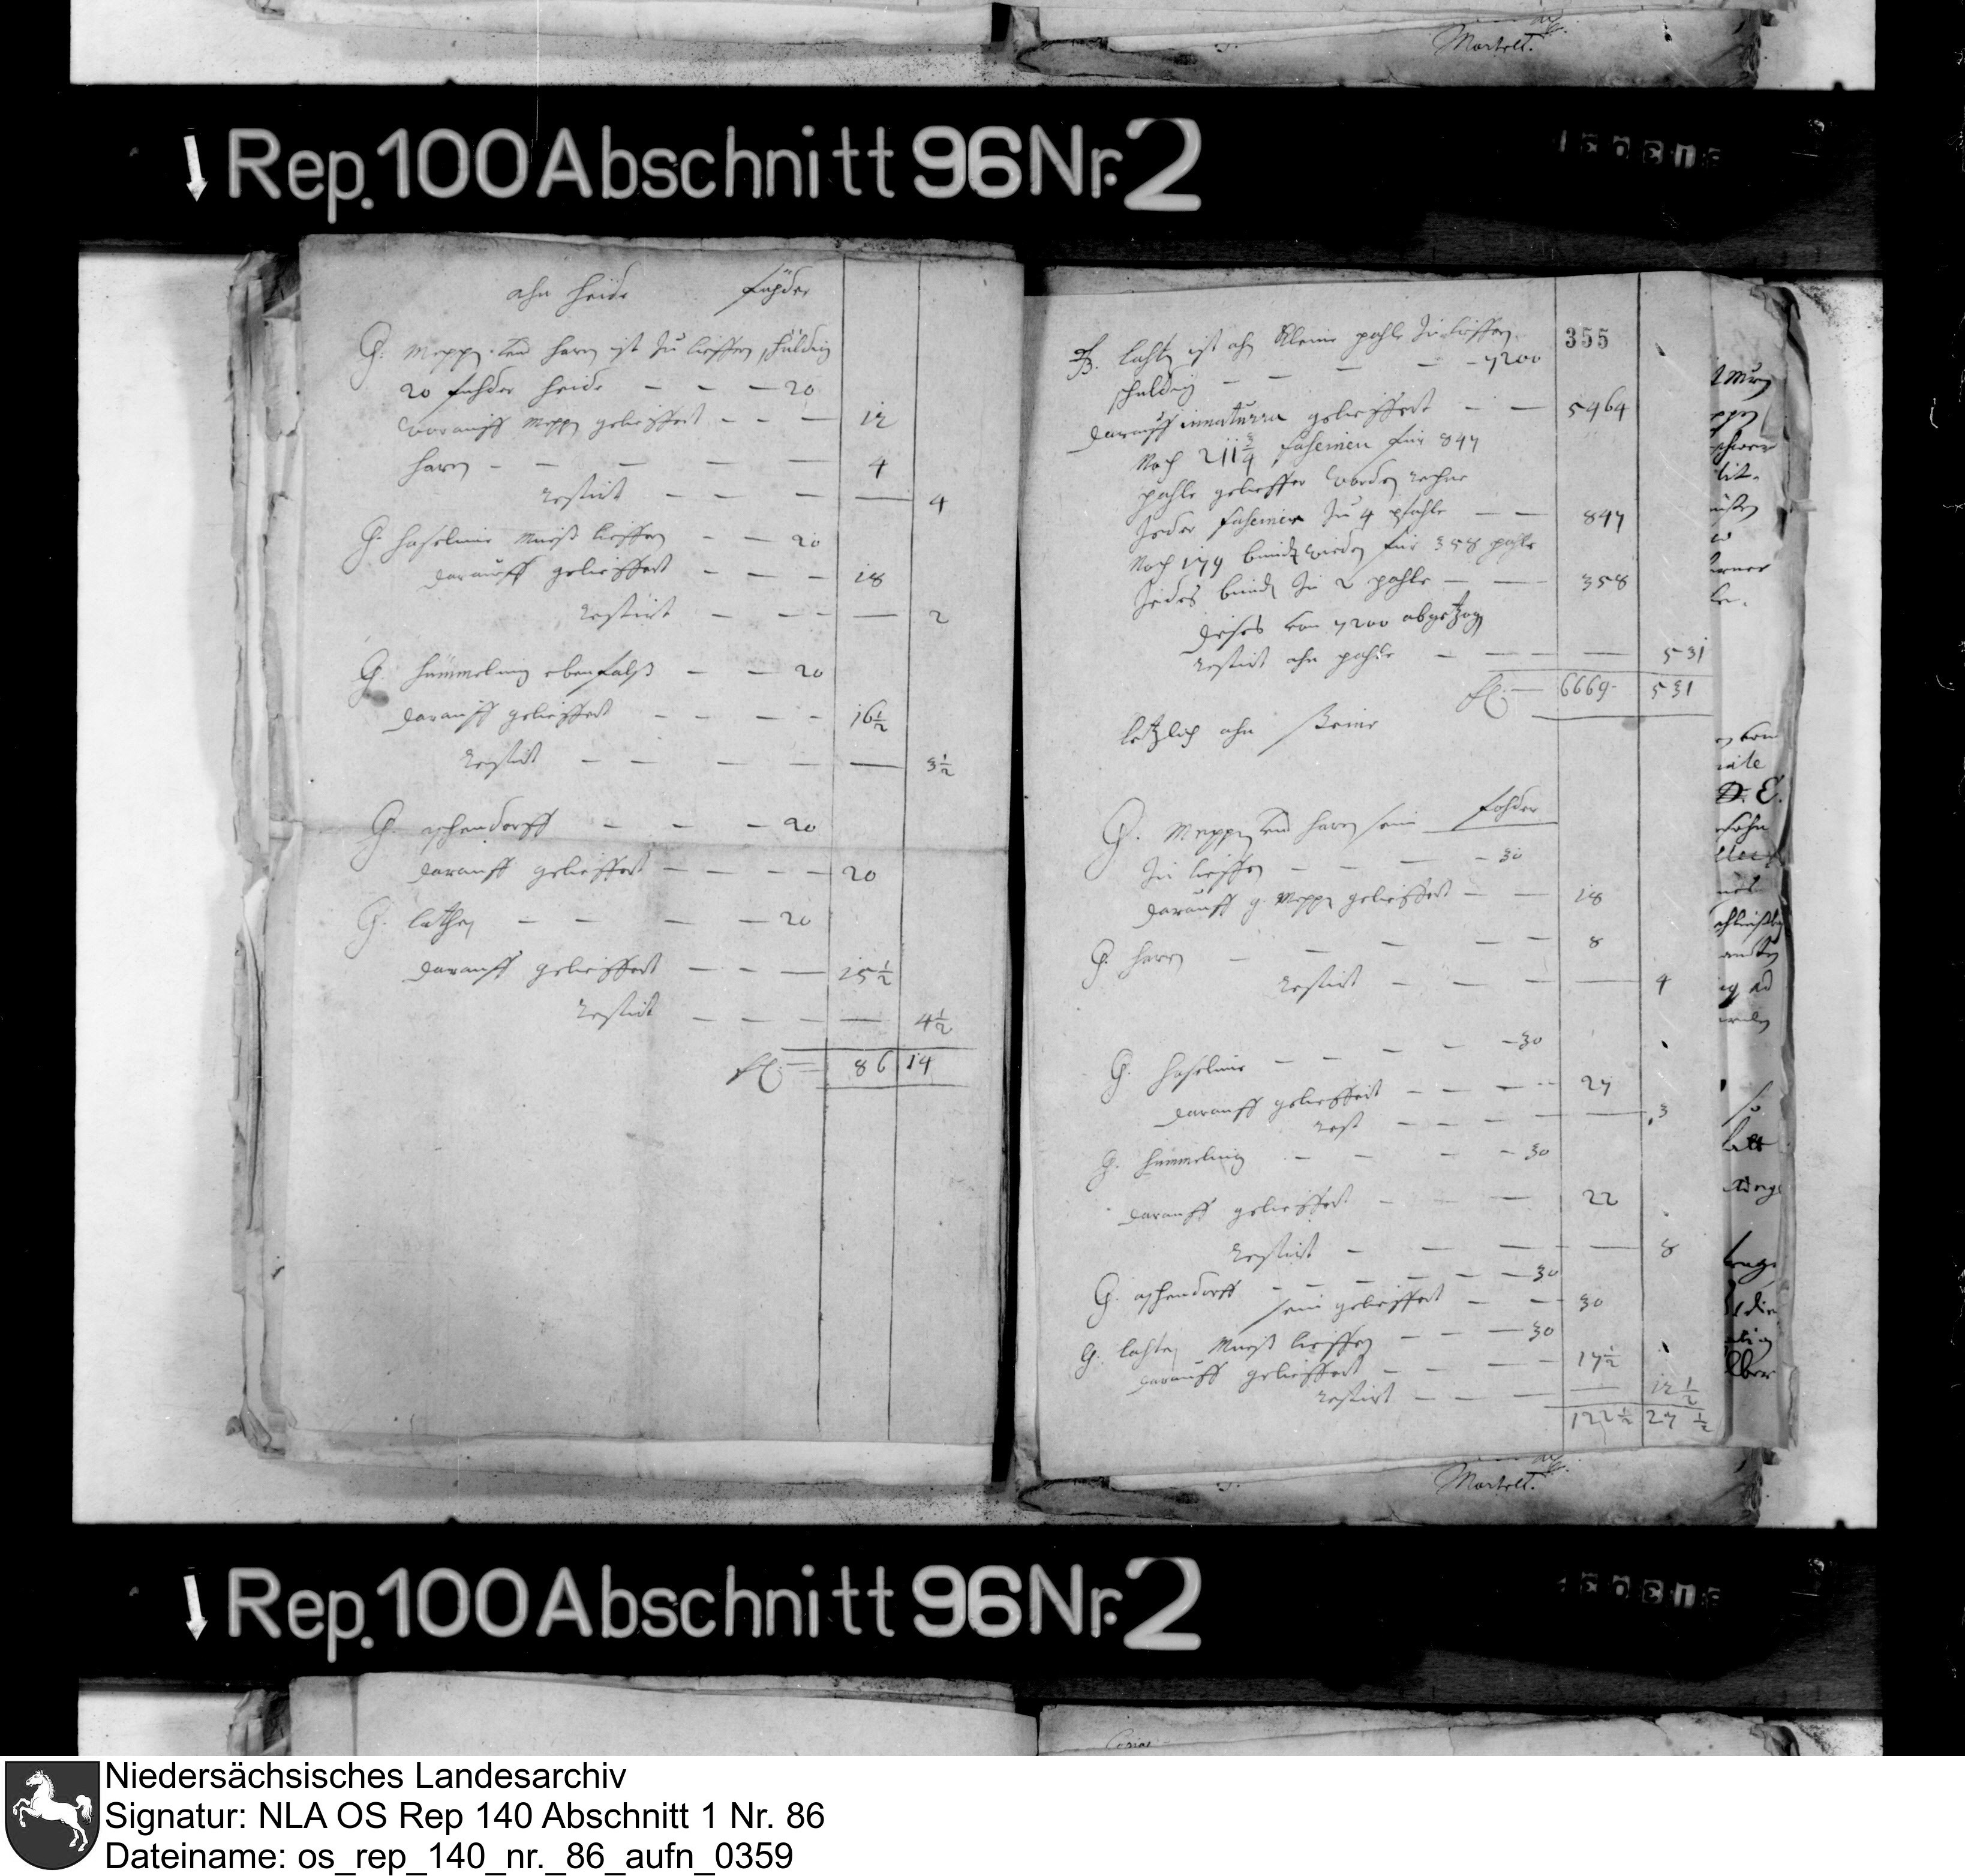 Martelt.
Rep. 100 Abschnitt 96 Nr. 2
ahn heide fuhder
G. Meppen und haren ist zu lieffern schuldig
20 fuhder heide — — — 20
worauff Meppen gelieffert — — — 12
haren — — — — — 4
restirt — — — — 4
G. haselunne muess lieffern — — 20
darauff gelieffert — — — 18
restirt — — — — 2
G. hummeling ebenfalss — — 20
darauff gelieffert — — — — 16 1/2
restirt — — — — — — 3 1/2
G. aschendorff — — — 20
darauff gelieffert — — — — 20
G. lathen — — — — 20
darauff gelieffert — — — 15 1/2
restirt — — — — — 4 1/2
86 14
355
lathen ist ahn kleine pahle zu lieffern
schuldig — — — — — 7200
darauff innaturra gelieffert — — 5464
Noch 211 3/4 faseinen für 847
pahle gelieffert worden
Jeder faseinen zu 4 pfahle — — 847
Noch 179 bundt wieden für 358 pahle
Jedes bundt zu 2 pahle — — 358
dieses von 7200 abgetzogen
restirt ahn pahle — — — — 531
6669 531
letzlich ahn steine
fohder
G. Meppen und haren sein
zu lieffern — — — — 30
darauff g. Meppen gelieffert — — 18
G. haren — — — — — 8
restirt — — — — — 4
G. haselunne — — — — — 30
darauff gelieffert — — — — 27
rest — — — — — 3
G. hummeling — — — — 30
darauff gelieffert — — — 22
restirt — — — — — 8
G. aschendorff — — — — — — 30
sein gelieffert — — 30
G. lathen muess lieffern — — — 30
darauff gelieffert — — — — 17 1/2
restirt — — — — 12 1/2
122 1/2 27 1/2
Martelt.
Rep. 100 Abschnitt 96 Nr. 2
Niedersächsisches Landesarchiv
Signatur: NLA OS Rep 140 Abschnitt 1 Nr. 86
Dateiname: os_rep_140_nr._86_aufn_0359